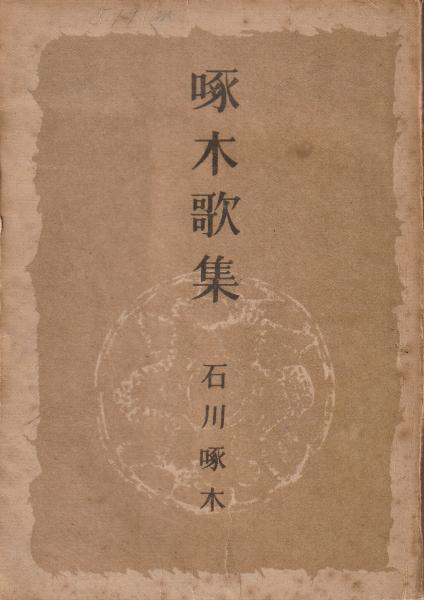 啄木歌集
石川啄木